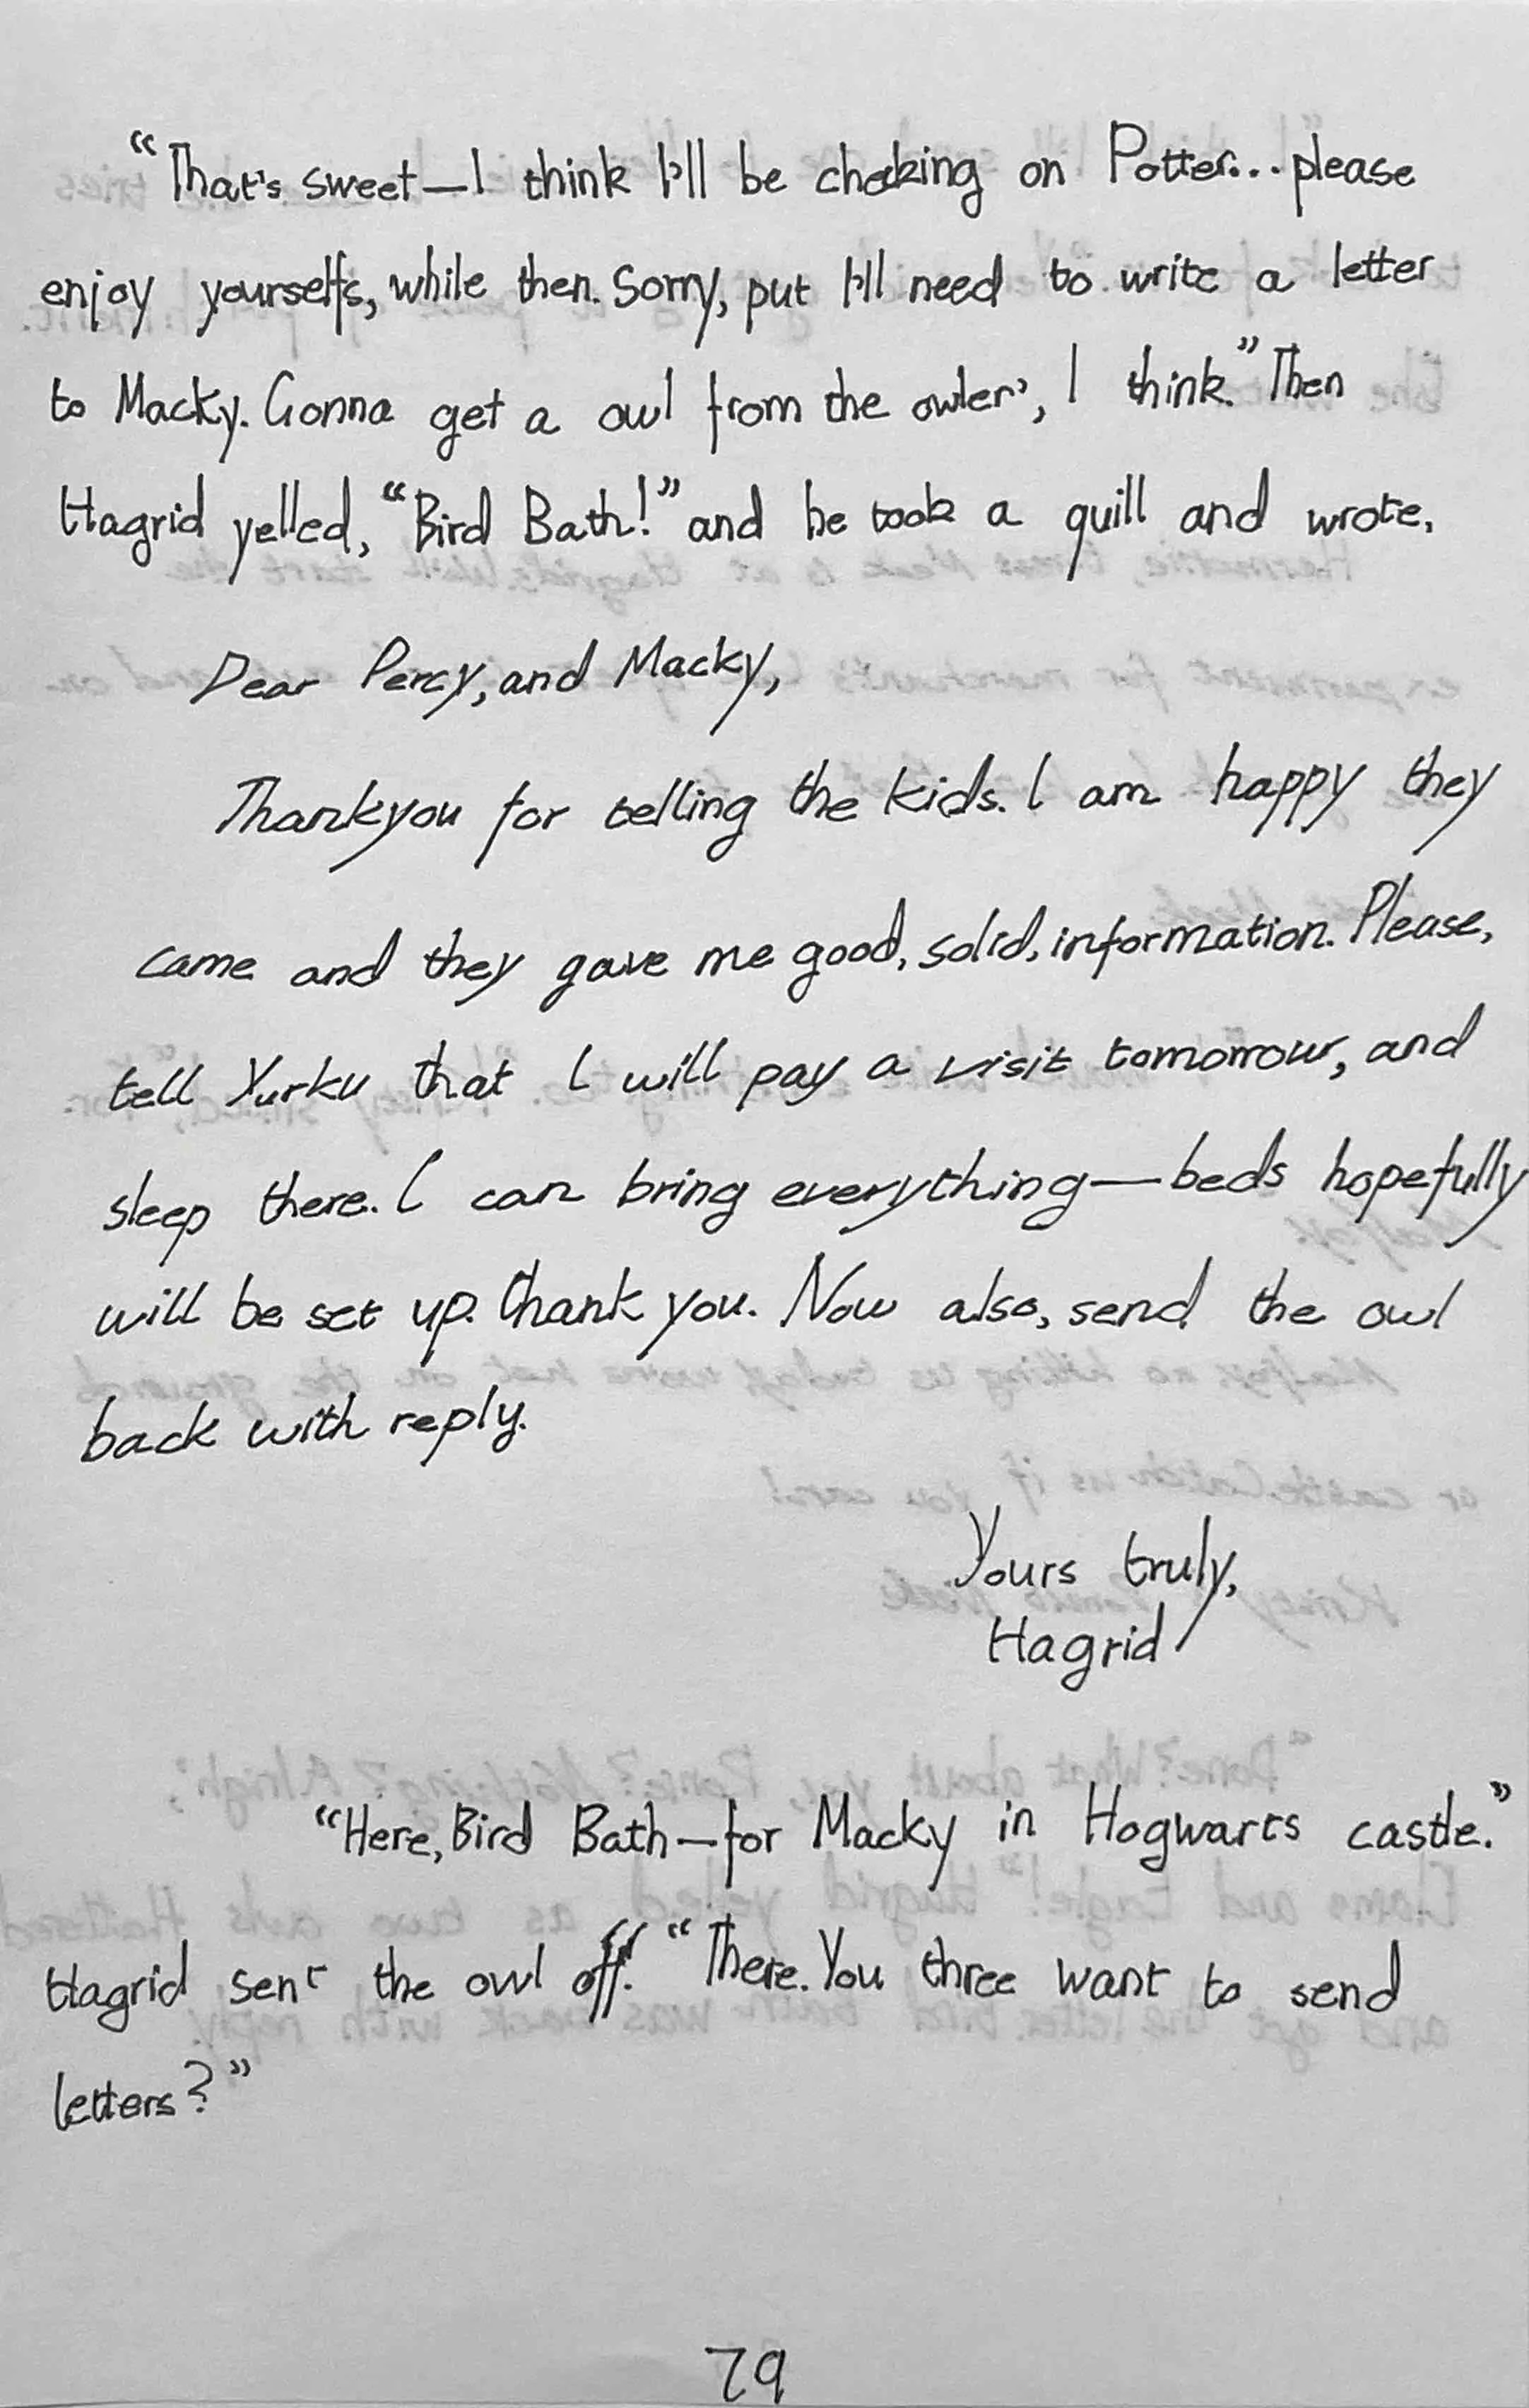 “That's sweet—I think I'll be checking on Potter... please
enjoy yourselfs, while then. Sorry, put I'll need to write a letter
to Macky. Gonna get a owl from the owler', I think.” Then
Hagrid yelled, “Bird Bath!” and he took a quill and wrote,
Dear Percy, and Macky,
Thankyou for telling the kids. I am happy they
came and they gave me good, solid, information. Please,
tell Yurku that I will pay a visit tomorrow, and
sleep there. I can bring everything—beds hopefully
will be set up. Thank you. Now also, send the owl
back with reply.
Yours truly,
Hagrid
“Here, Bird Bath—for Macky in Hogwarts castle.”
Hagrid sent the owl off. “There. You three want to send
letters?”
79